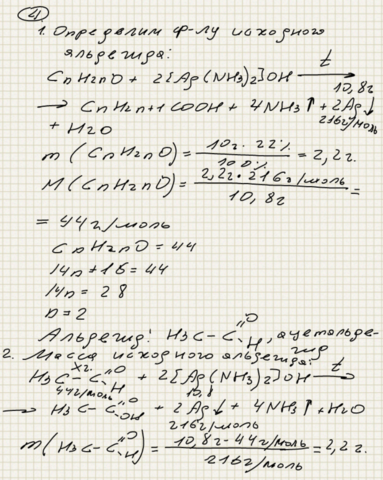 4
1. Определим ф-лу исходного
альдегида:
CnH2nO + 2[Ag(NH3)2]OH t→
10,8г
→ CnH2n+1COOH + 4NH3↑ + 2Ag↓
216г/моль
+ H2O
m(CnH2nO) = 10г·22% / 100% = 2,2г.
M(CnH2nO) = 2,2г·216г/моль / 10,8г =
= 44г/моль
CnH2nO = 44
14n + 16 = 44
14n = 28
n = 2
Альдегид: H3C-C=O H, ацетальде-
гид
2. Масса исходного альдегида:
xг. 10,8
H3C-C=O H + 2[Ag(NH3)2]OH t→
44г/моль
→ H3C-C=O OH + 2Ag↓ + 4NH3↑ + H2O
216г/моль
m(H3C-C=O H) = 10,8г-44г/моль / 216г/моль = 2,2г.